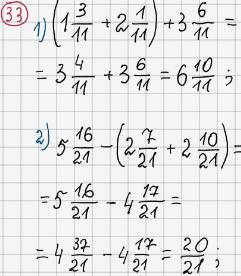 33 1) (1 3/11 + 2 1/11) + 3 6/11 =
= 3 4/11 + 3 6/11 = 6 10/11 ;
2) 5 16/21 - (2 7/21 + 2 10/21) =
= 5 16/21 - 4 17/21 =
= 4 37/21 - 4 17/21 = 20/21 ;